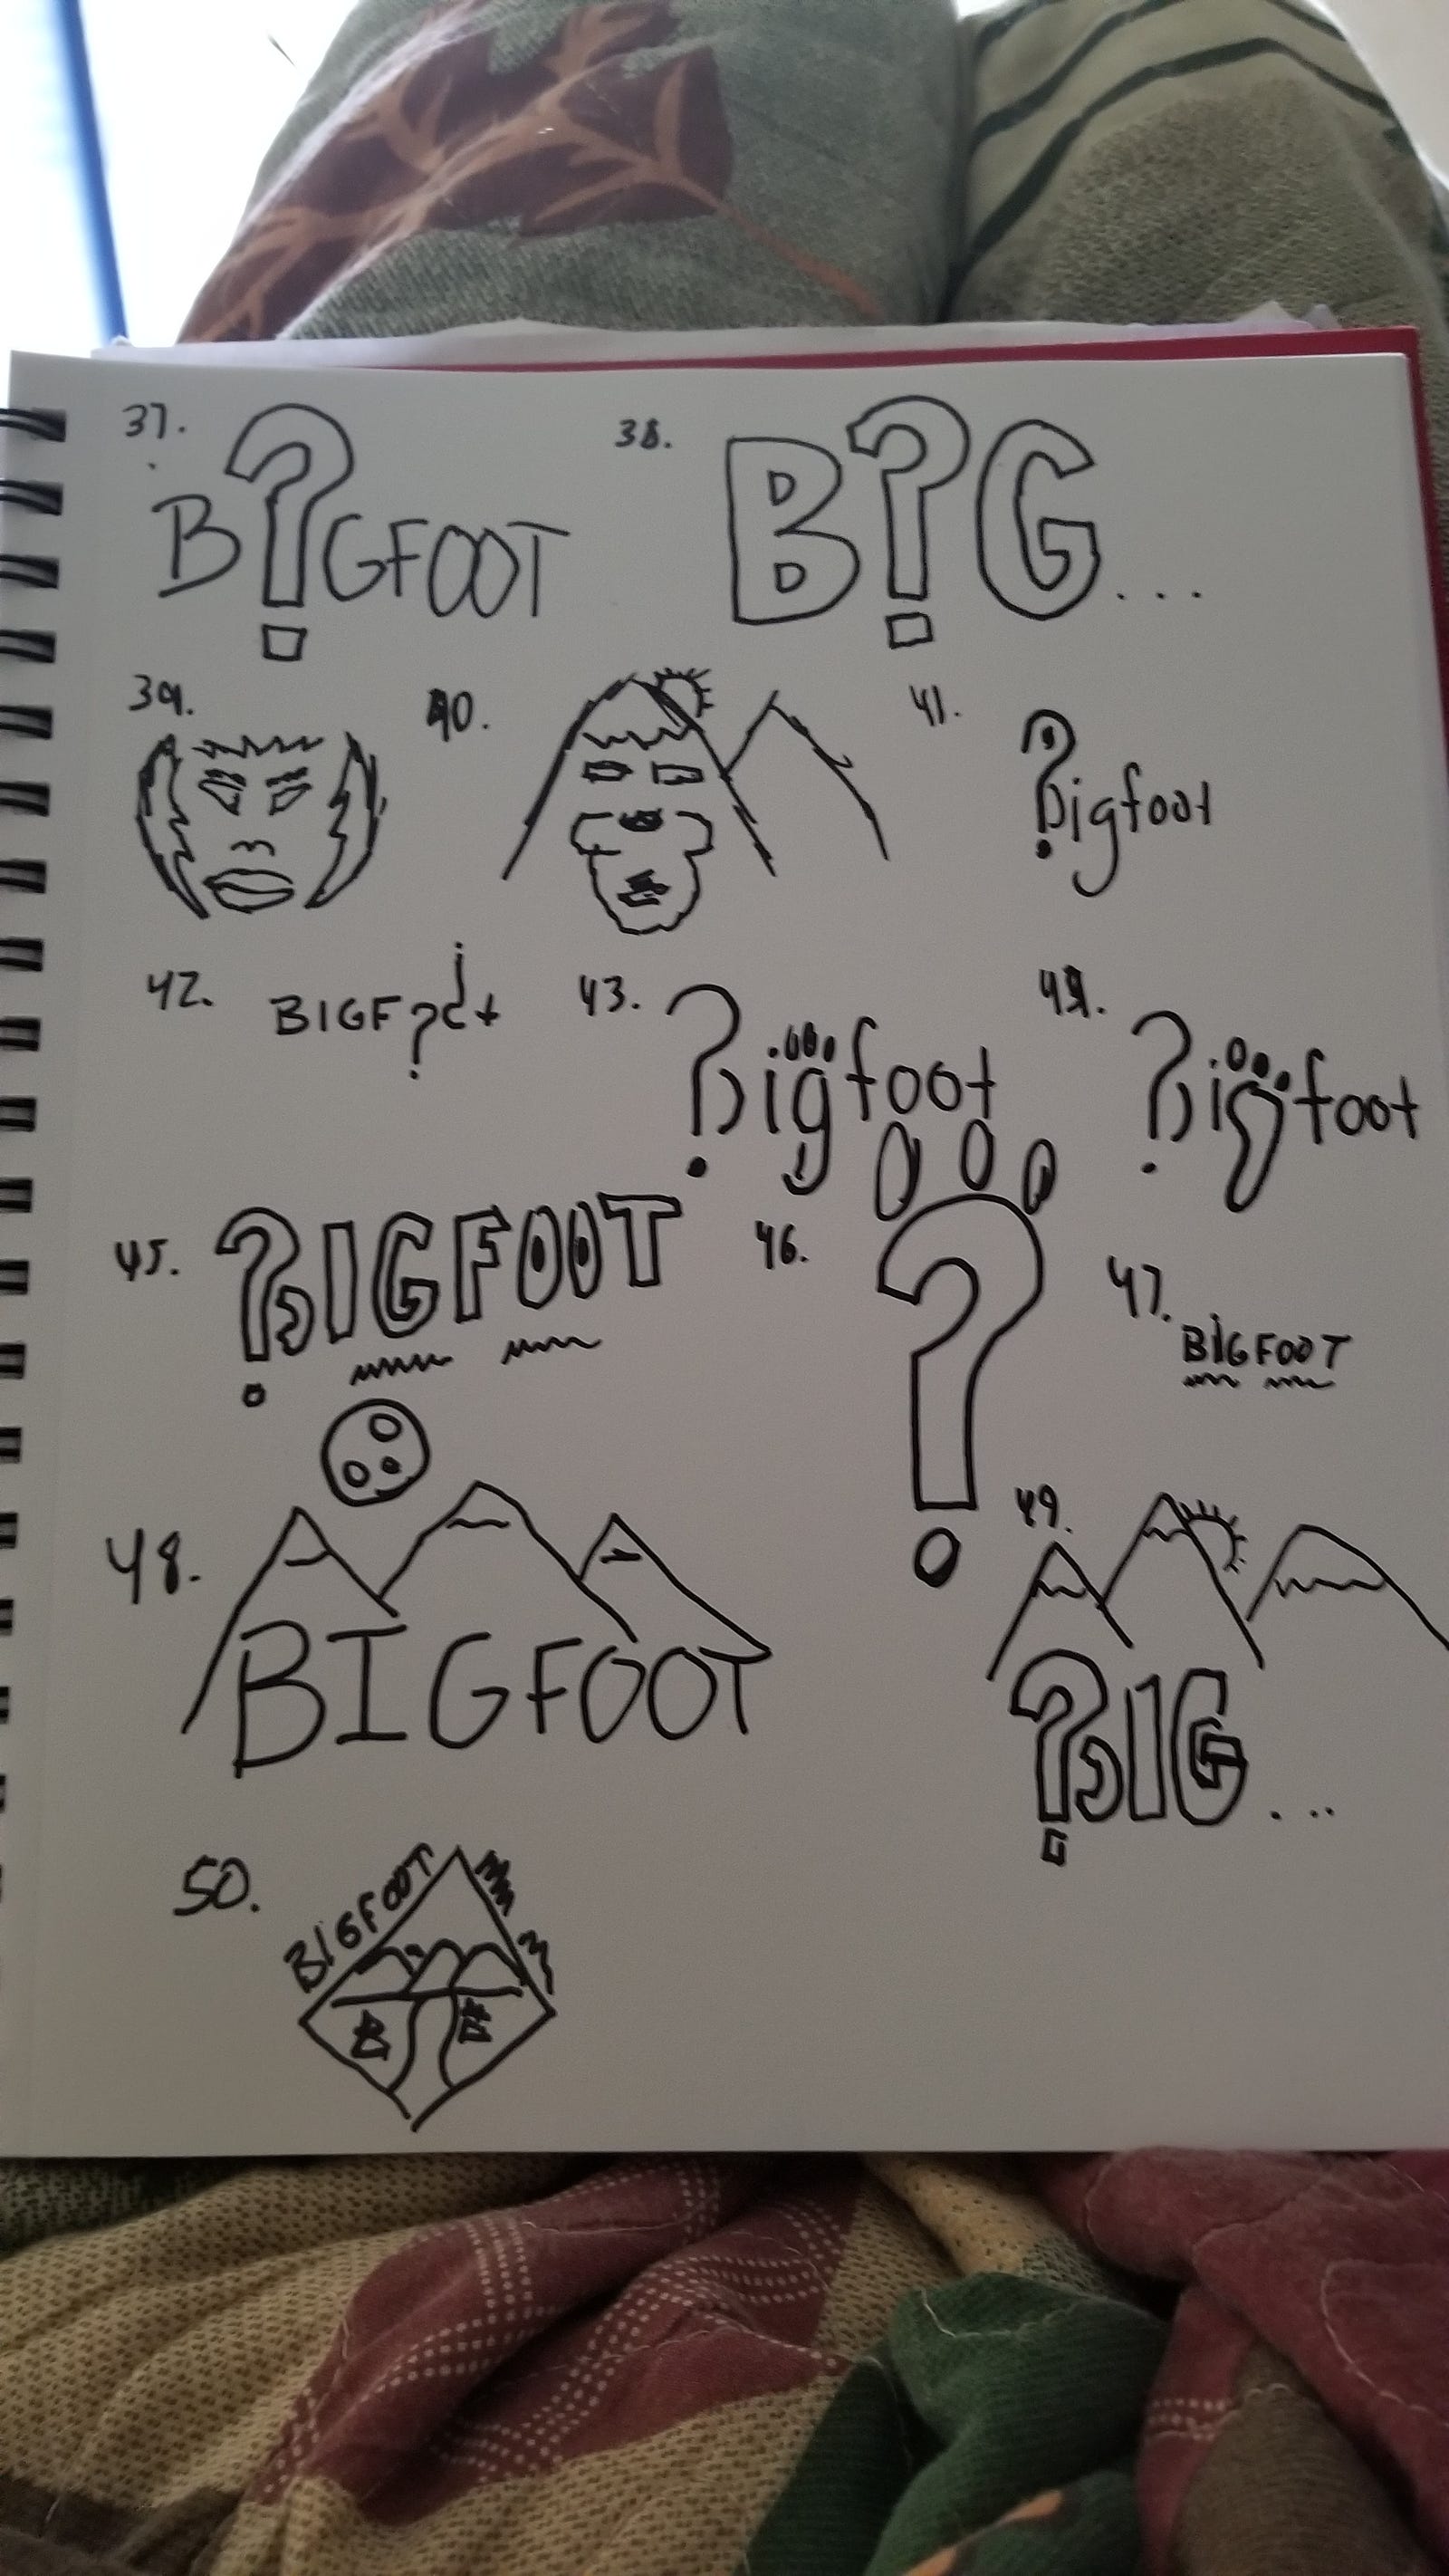 37. B?GFOOT
38. B?G...
39.
40.
41. ?igfoot
42. BIGF?¿t
43. ?igfoot
44. ?igfoot
45. ?IGFOOT
46. ?
47. BiGFOOT
48. BIGFOOT
49. ?IG...
50. BIGFOOT
B